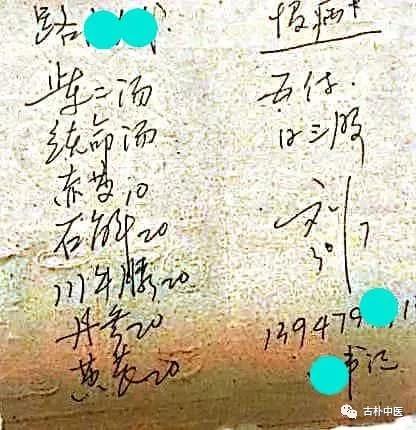 路
柴二汤
续命汤
赤芍10
石斛20
川牛膝20
丹参20
黄芪20
五付
日三服
刘
30/7
139479
书记
古朴中医